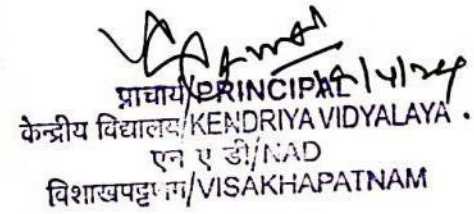 प्राचार्य/PRINCIPAL
केन्द्रीय विद्यालय/KENDRIYA VIDYALAYA .
एन ए डी/NAD
विशाखपट्टणम/VISAKHAPATNAM